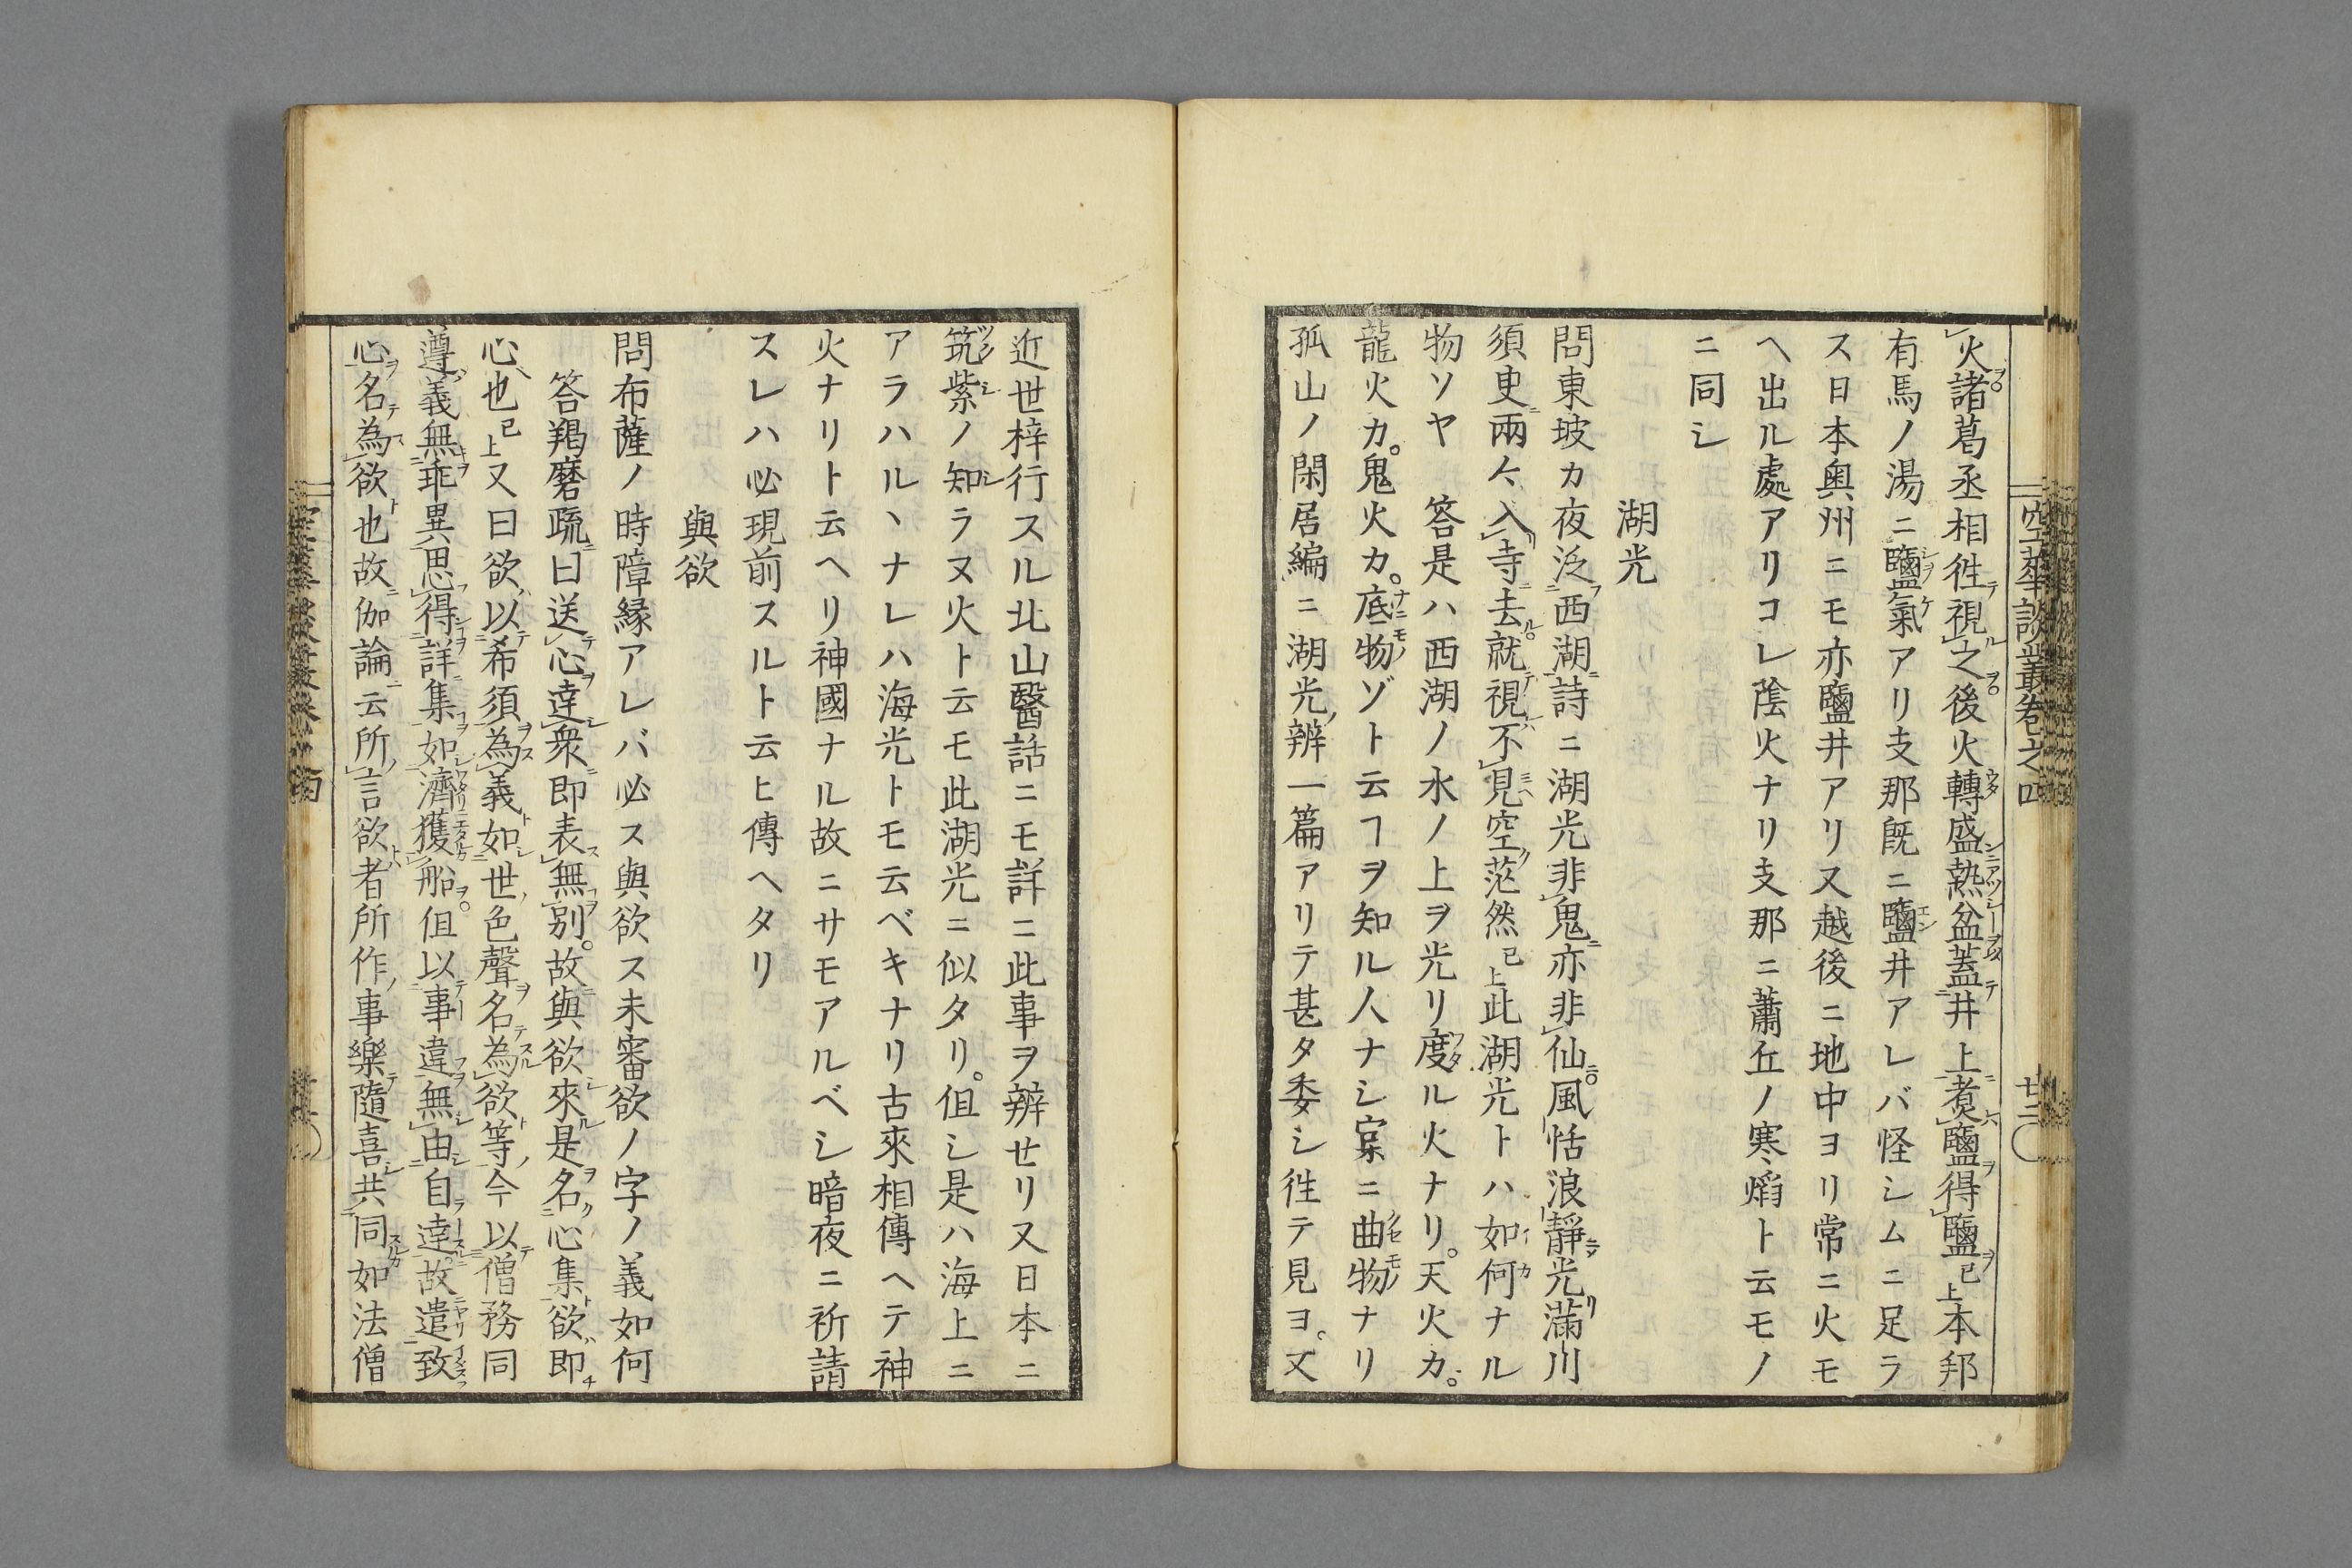 空華談叢卷之四 廿二
火諸葛丞相徃視之後火轉盛熱盆蓋井上煮鹽得鹽已上本邦
有馬ノ湯ニ鹽氣アリ支那既ニ鹽井アレバ怪シムニ足ラ
ス日本奥州ニモ亦鹽井アリ又越後ニ地中ヨリ常ニ火モ
ヘ出ル處アリコレ陰火ナリ支那ニ蕭丘ノ寒焔ト云モノ
ニ同シ
湖光
問東坡カ夜泛西湖詩ニ湖光非鬼亦非仙風恬浪靜光滿川
須臾兩々入寺去就視不見空茫然已上此湖光トハ如何ナル
物ソヤ 答是ハ西湖ノ水ノ上ヲ光リ度ル火ナリ。天火カ。
龍火カ。鬼火カ。底物ゾト云ヿヲ知ル人ナシ寔ニ曲物ナリ
孤山ノ閑居編ニ湖光辨一篇アリテ甚タ委シ徃テ見ヨ。又
近世梓行スル北山醫話ニモ詳ニ此事ヲ辨セリ又日本ニ
筑紫ノ知ラヌ火ト云モ此湖光ニ似タリ。但シ是ハ海上ニ
アラハルヽナレハ海光トモ云ベキナリ古來相傳ヘテ神
火ナリト云ヘリ神國ナル故ニサモアルベシ暗夜ニ祈請
スレハ必現前スルト云ヒ傳ヘタリ
與欲
問布薩ノ時障縁アレバ必ス與欲ス未審欲ノ字ノ義如何
答羯磨疏曰送心達衆即表無別。故與欲來是名心集欲即
心也已上又曰欲以希須為義如世色聲名為欲等今以僧務同
遵義無乖異思得詳集如濟獲船。但以事違無由自達。故遣致
心名為欲也故伽論云所言欲者所作事樂隨喜共同如法僧